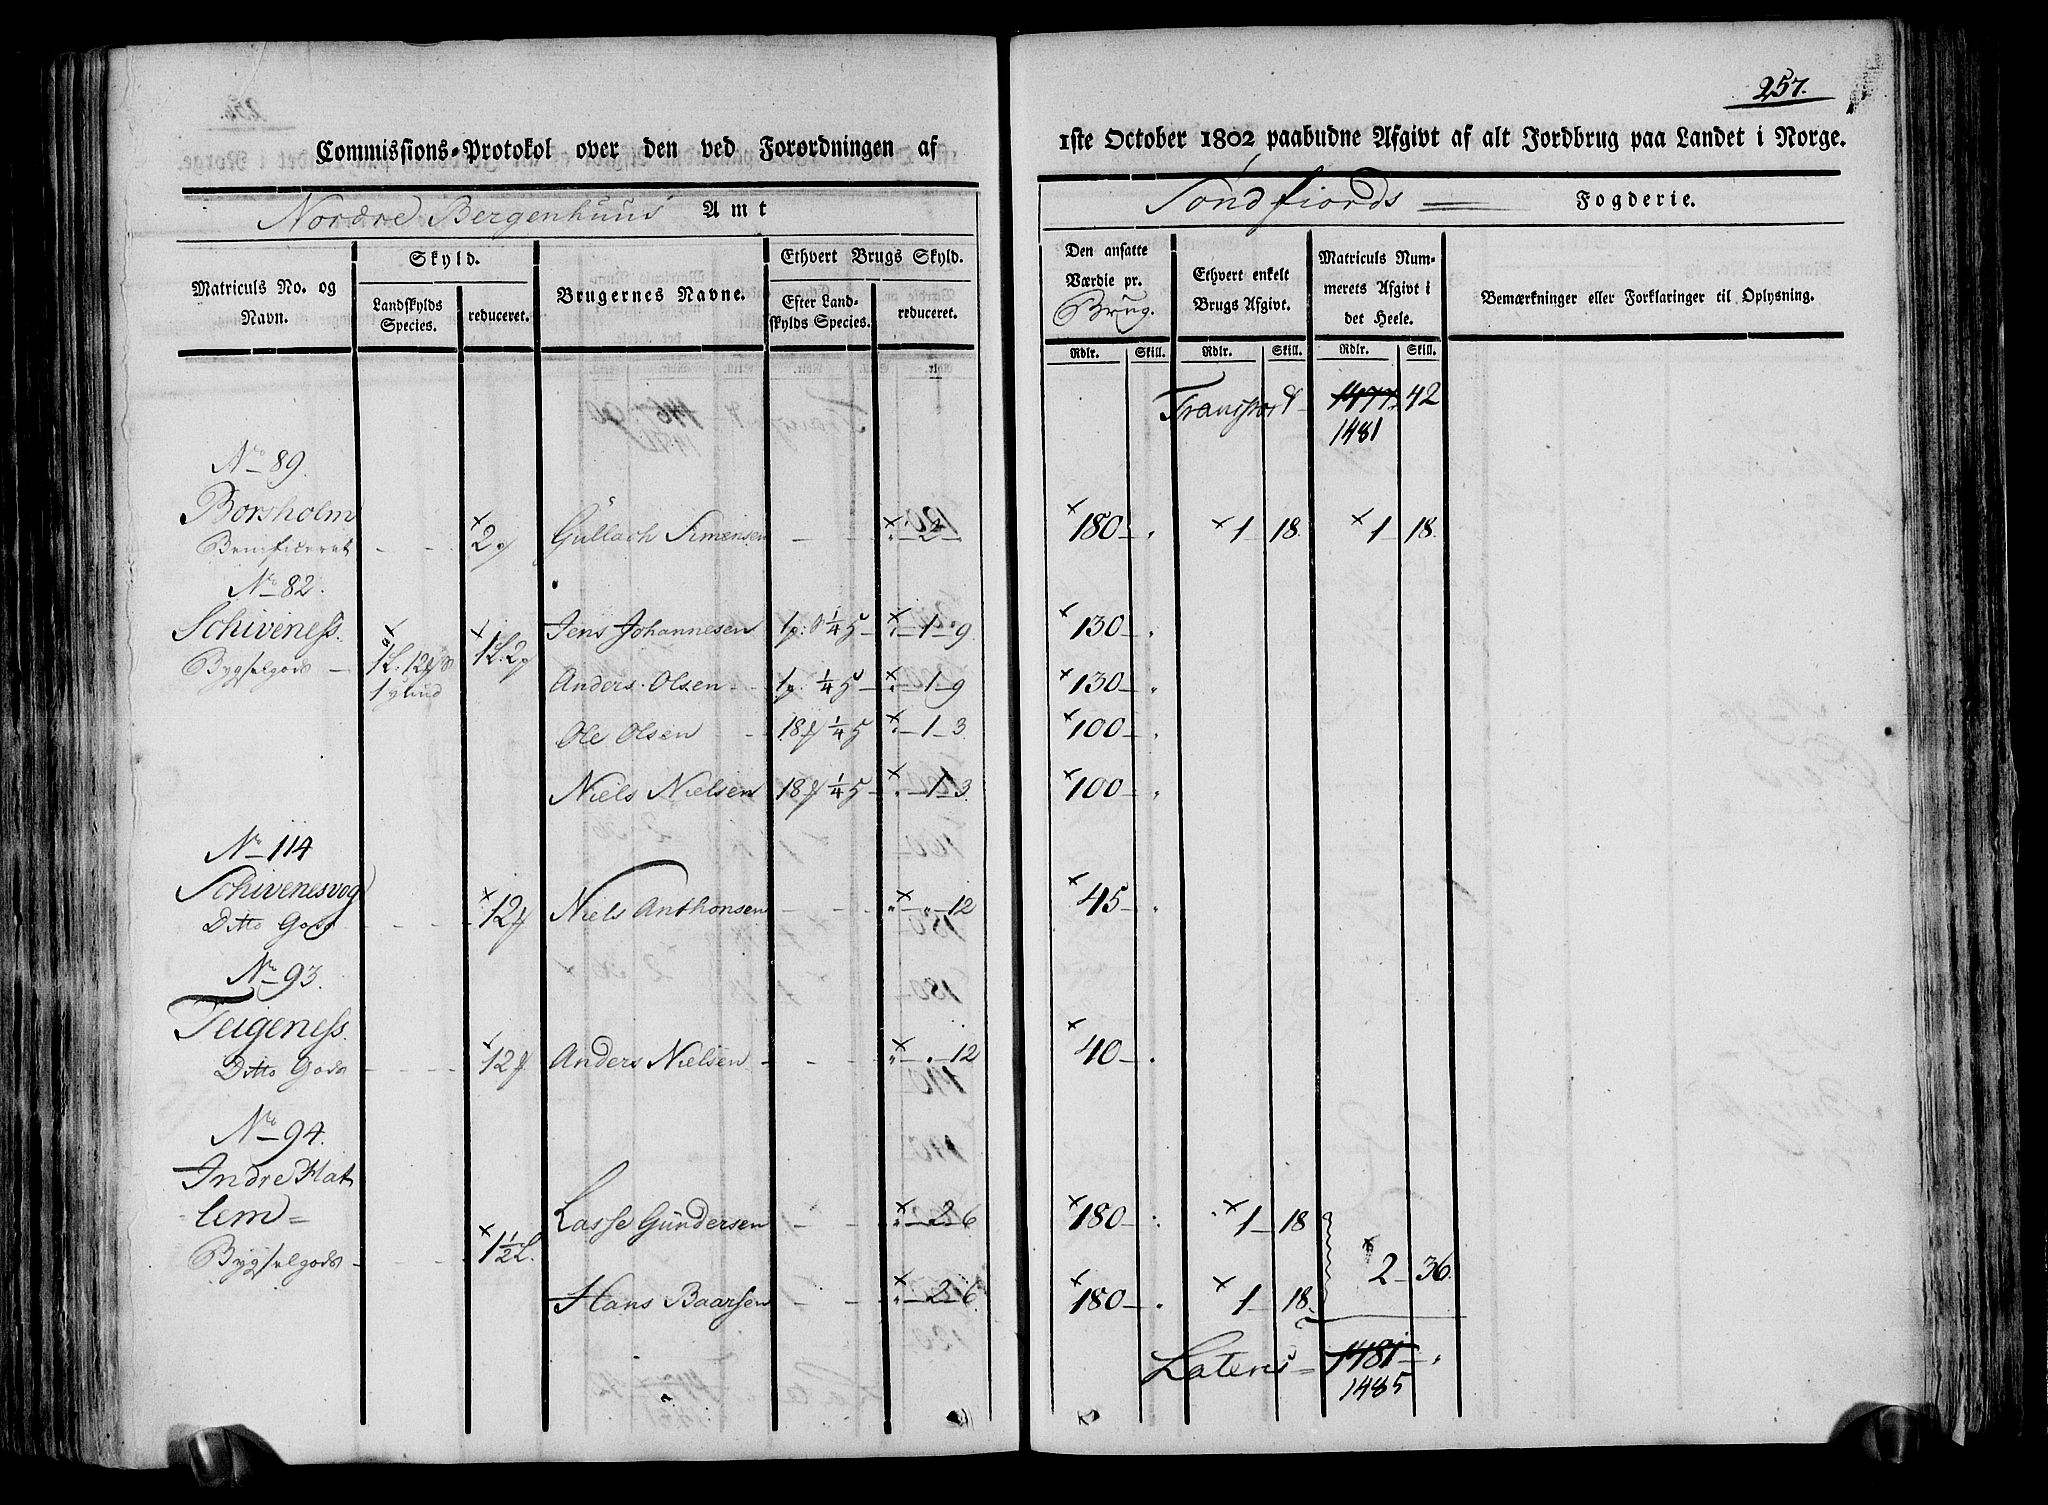 257.
Commissions-Protokol over den ved Forordningen af 1ste October 1802 paabudne Afgivt af alt Jordbrug paa Landet i Norge.
Nordre Bergenhuus Amt
Söndfiords Fogderie.
Matriculs No. og Navn.
Skyld.
Landskylds Species.
reduceret.
Brugernes Navne.
Ethvert Brugs Skyld.
Efter Landskylds Species.
reduceret.
Den ansatte Værdie pr. Brug.
Ethvert enkelt Brugs Afgivt.
Matriculs Nummerets Afgivt i det Heele.
Bemærkninger eller Forklaringer til Oplysning.
Rdlr. Skill. Rdlr. Skill. Rdlr. Skill.
Transport 1477 42
1481
No 89.
Borsholm
Benificeret 2 Gullach Simensen " 2 180 1 18 1 18
No 82.
Schiveness. Jens Johannesen 1 1/4 5 1 9 130
Bygselgods Anders Olsen 1 1/4 5 1 9 130
Ole Olsen 18 1/4 5 1 3 100
Niels Nielsen 18 1/4 5 1 3 100
No 114
Schivenesvog
Ditto Gods 12 Niels Anthonsen " " 12 45
No 93.
Teigeness.
Ditto Gods 12 Anders Nielsen " " 12 40
No 94.
Indre Hat
lem Lasse Gundersen " 2 6 180 1 18
Bygselgods 1 1/2 L. 2 36.
Hans Baarsen " 2 6 180 1 18
Lateris 1481
1485